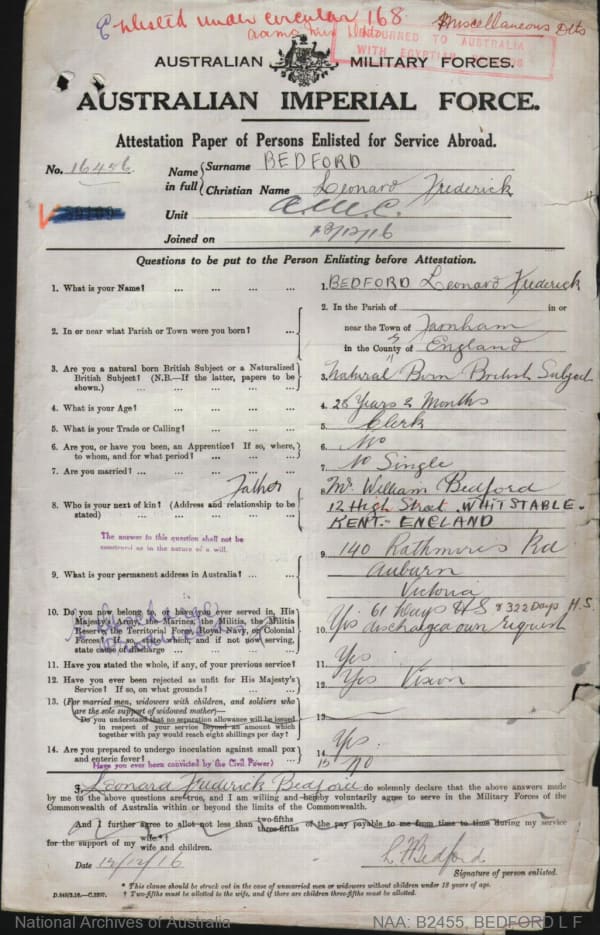 Enlisted under circular 168.
Miscellaneous Dets
RETURNED TO AUSTRALIA
WITH EGYPTIAN
AUSTRALIAN MILITARY FORCES.
AUSTRALIAN IMPERIAL FORCE.
Attestation Paper of Persons Enlisted for Service Abroad.
No. 16456 Name in full { Surname BEDFORD
Christian Name Leonard Frederick
Unit A.M.C.
Joined on 12/12/16
Questions to be put to the Person Enlisting before Attestation.
1. What is your Name? ... ... ... ... 1. BEDFORD Leonard Frederick
2. In or near what Parish or Town were you born? ... 2. In the Parish of in or
near the Town of Farnham
in the County of England
3. Are you a natural born British Subject or a Naturalized
British Subject? (N.B.—If the latter, papers to be
shown.) ... ... ... ... 3. Natural Born British Subject
4. What is your Age? ... ... ... ... 4. 28 Years 2 Months
5. What is your Trade or Calling? ... ... ... 5. Clerk
6. Are you, or have you been, an Apprentice? If so, where,
to whom, and for what period? ... ... ... 6. No
7. Are you married? ... ... ... ... 7. No Single
Father
8. Who is your next of kin? (Address and relationship to be
stated) ... ... ... ... 8. Mr William Bedford
12 High Street WHITSTABLE.
KENT.- ENGLAND
The answer to this question shall not
be construed as in the nature of a will.
9. What is your permanent address in Australia? ... ... 9. 140 Rathmines Rd
Auburn
Victoria
10. Do you now belong to, or have you ever served in, His
Majesty's Army, the Marines, the Militia, the Militia
Reserve, the Territorial Force, Royal Navy, or Colonial
Forces? If so, state which, and if not now serving,
state cause of discharge ... ... ... 10. Yes 61 Days H S & 322 Days H.S.
discharged own request
11. Have you stated the whole, if any, of your previous service? 11. Yes
12. Have you ever been rejected as unfit for His Majesty's
Service? If so, on what grounds? ... ... 12. Yes Vision
13. (For married men, widowers with children, and soldiers who
are the sole support of widowed mother)—
Do you understand that no separation allowance will be issued
in respect of your service beyond an amount which
together with pay would reach eight shillings per day? 13.
14. Are you prepared to undergo inoculation against small pox
and enteric fever? ... ... ... ... 14. Yes
Have you ever been convicted by the Civil Power? 15 No
I, Leonard Frederick Bedford do solemnly declare that the above answers made
by me to the above questions are true, and I am willing and hereby voluntarily agree to serve in the Military Forces of the
Commonwealth of Australia within or beyond the limits of the Commonwealth.
And I further agree to allot not less than two-fifths three-fifths of the pay payable to me from time to time during my service
for the support of my wife.*† wife and children.
Date 12/12/16
L F Bedford
Signature of person enlisted.
* This clause should be struck out in the case of unmarried men or widowers without children under 18 years of age.
† Two-fifths must be allotted to the wife, and if there are children three-fifths must be allotted.
National Archives of Australia
NAA: B2455, BEDFORD L F